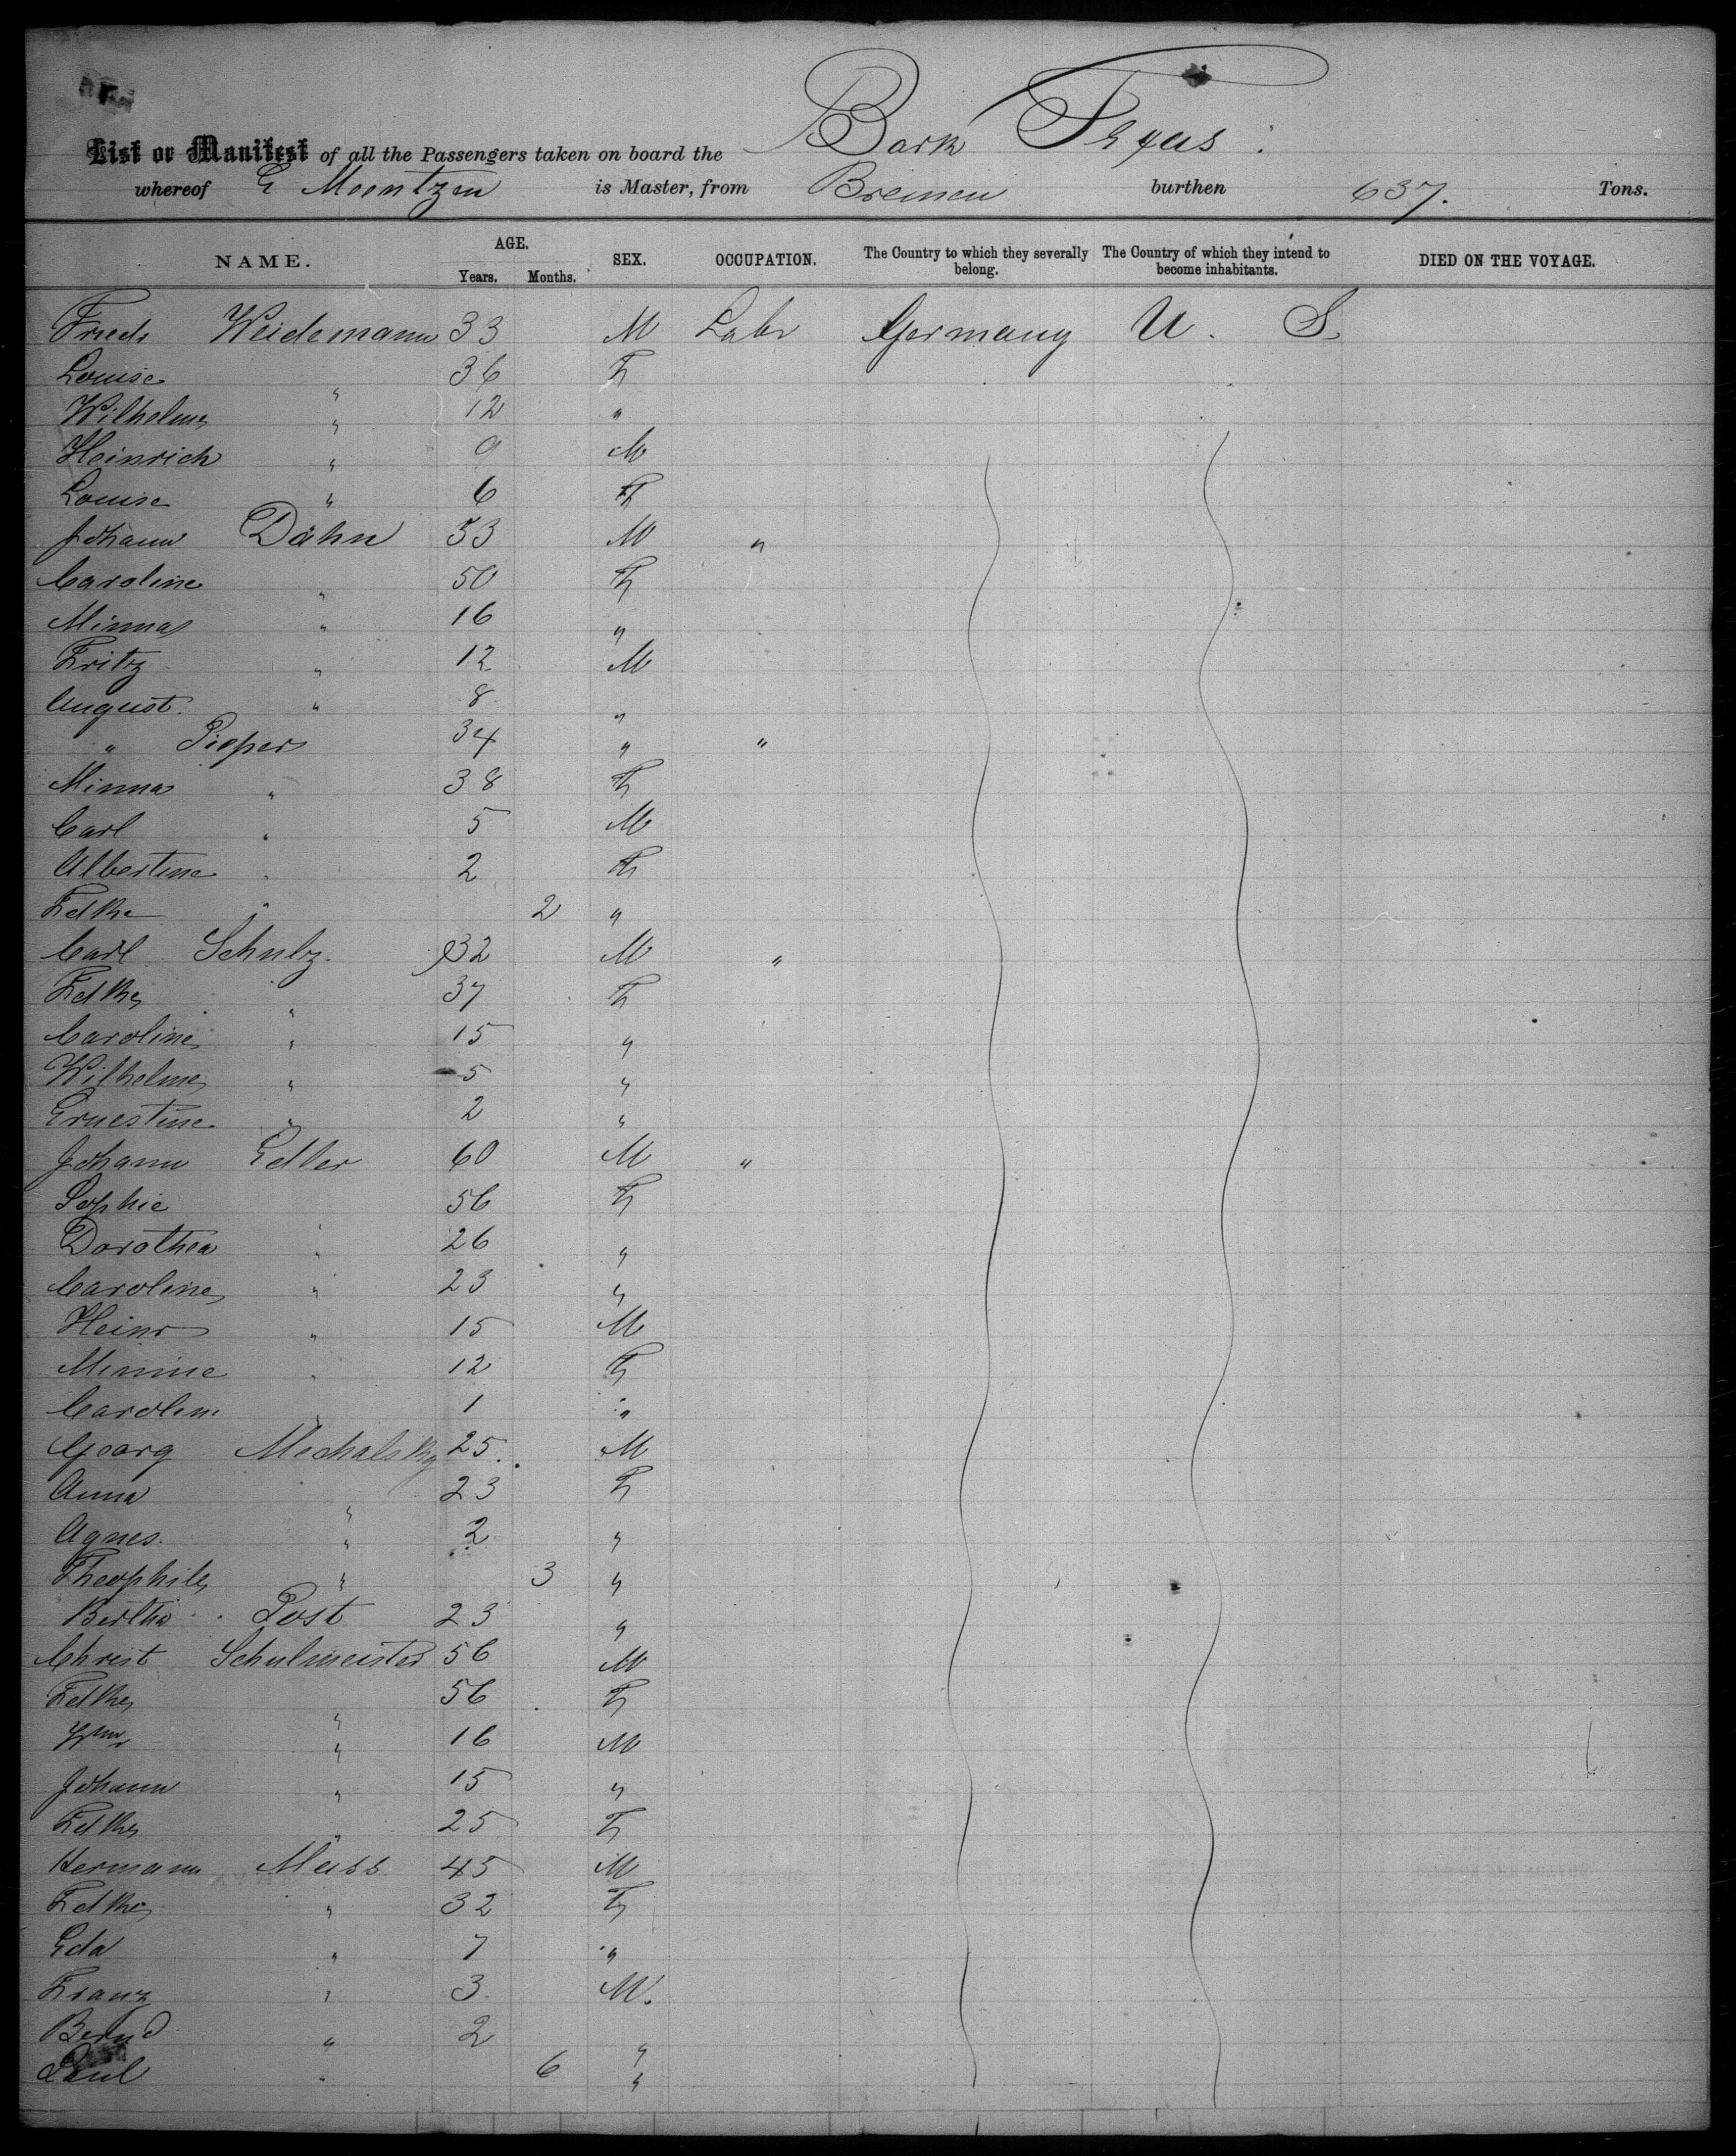 List or Manifest of all the Passengers taken on board the Bark Texas
whereof E Mentzen is Master, from Bremen burthen 637. Tons.
NAME. AGE. Years. Months. SEX. OCCUPATION. The Country to which they severally belong. The Country of which they intend to become inhabitants. DIED ON THE VOYAGE.
Friedr Weidemann 33 M Labr Germany U. S.
Louise " 36 F
Wilhelme " 12 "
Heinrich " 9 M
Louise " 6 F
Johann Dähn 53 M "
Caroline " 50 F
Minna " 16 "
Fritz " 12 M
August " 8 "
" Pieper 34 " "
Minna " 38 F
Carl " 5 M
Albertine " 2 F
Fdke " 2 "
Carl Schulz 32 M "
Fdke " 37 F
Caroline " 15 "
Wilhelme " 5 "
Ernestine " 2 "
Johann Edler 60 M "
Sophie 56 F
Dorothea " 26 "
Caroline " 23 "
Heinr " 15 M
Minnie " 12 F
Caroline " 1 "
Georg Mechalsky 25 M
Anna " 23 F
Agnes " 2 "
Theophile " 3 "
Bertha Post 23 "
Christ Schulmeister 56 M
Fdke " 56 F
Wm " 16 M
Johann " 15 "
Fdke " 25 F
Hermann Meiss 45 M
Fdke " 32 F
Eda " 7 "
Franz " 3 M.
Bernd " 2 "
Paul " 6 "